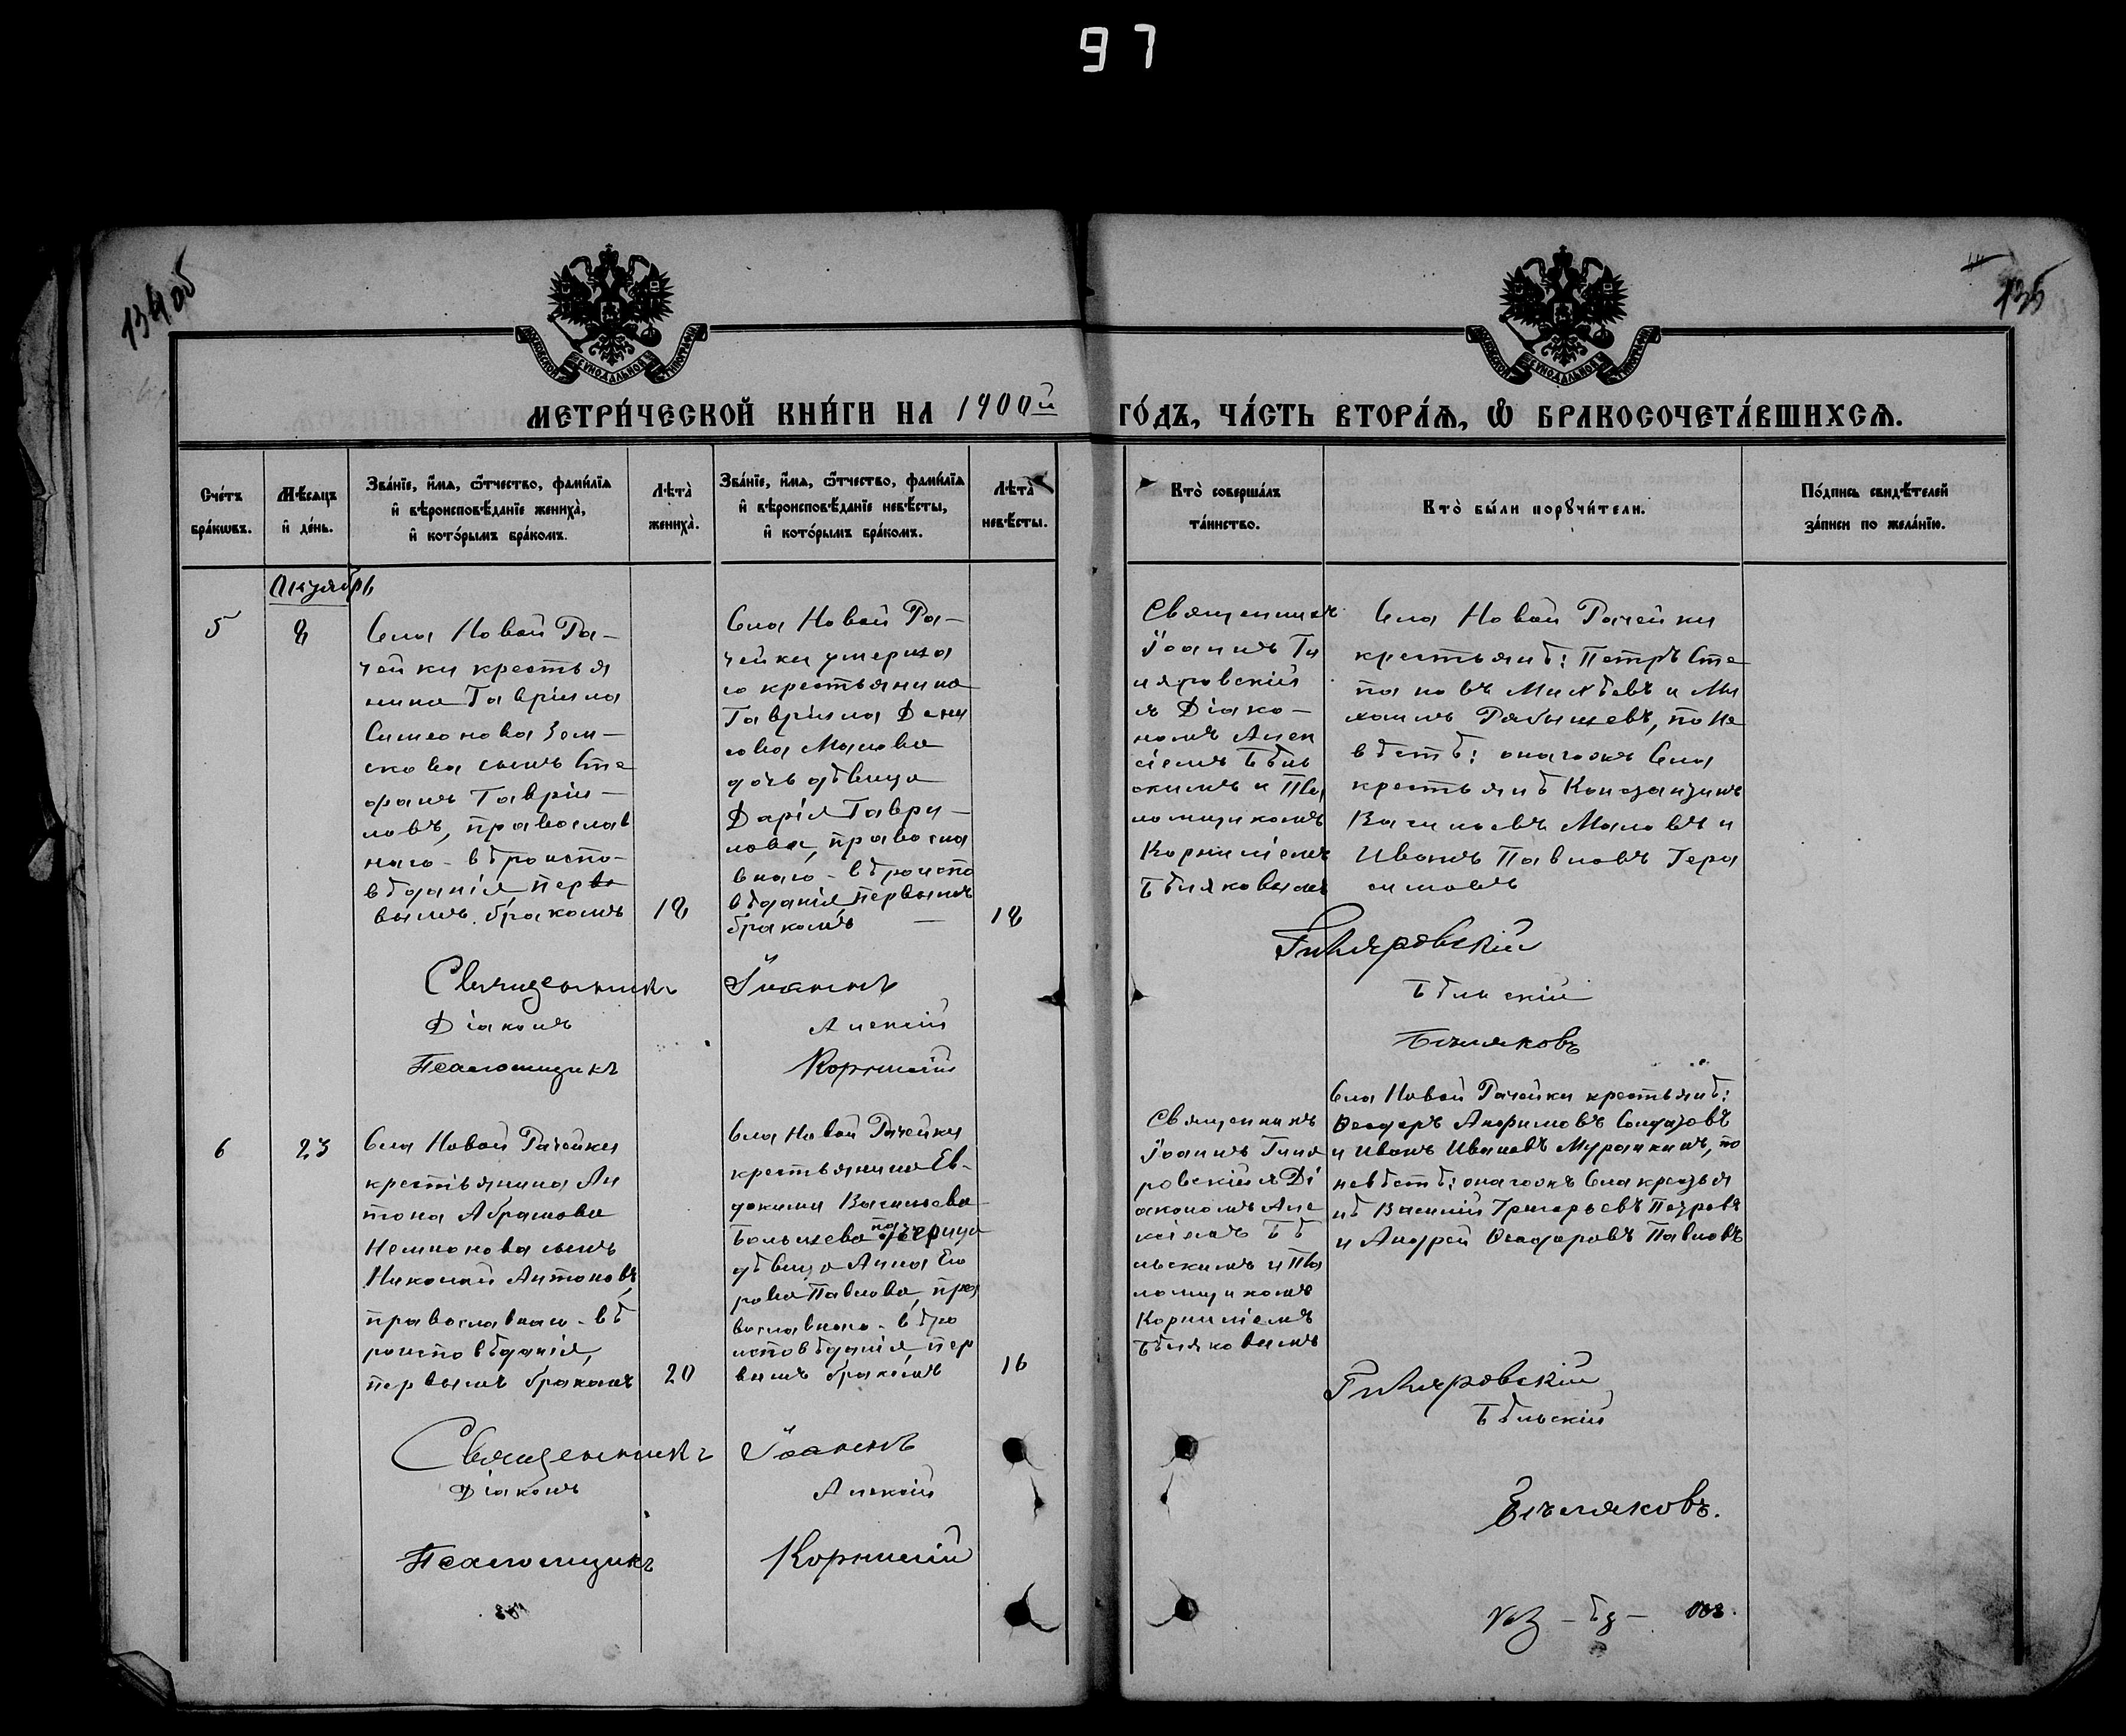 97
134об
135
МЕТРИ́ЧЕСКОЙ КНИ́ГИ НА 1900й ГО́ДЪ, ЧА́СТЬ ВТОРА́Я, Ѡ БРАКОСОЧЕТА́ВШИХСЯ.
Сче́тъ
бра́кѡвъ.
Мѣ́сяцъ
и҆ де́нь.
Зва́нїе, и҆́мя, ѻ҆́тчество, фами́лїя
и҆ вѣроисповѣ́данїе жениха̀,
и҆ кото́рымъ бра́комъ.
Лѣта̀
жениха̀.
Зва́нїе, и҆́мя, ѻ҆́тчество, фами́лїя
и҆ вѣроисповѣ́данїе невѣ́сты,
и҆ кото́рымъ бра́комъ.
Лѣта̀
невѣ́сты.
Кто̀ соверша́лъ
та́инство.
Кто̀ бы́ли порꙋчи́тели.
По́дпись свидѣ́телей
за́писи по жела́нїю.
Октябрь
5
8
Села Новой Ра-
чейки крестья
нина Гавріила
Симеонова Зем-
скова сынъ Сте
фанъ Гавріи-
ловъ, православ
наго-вѣроиспо-
вѣданія перв
вымъ бракомъ
18
Села Новой Ра-
чейки умерша
го крестьянина
Гавріила Дени
сова Малова
дочь дѣвица
Дарія Гаври-
лова, правосла
внаго-вѣроиспо
вѣданія первымъ
бракомъ —
18
Священникъ
Іоаннъ Ги
ляровскій
съ Діако-
номъ Алек
сіемъ Бѣль
скимъ и Пса
ломщикомъ
Корниліемъ
Бѣляковымъ
Села Новой Рачейки
крестьянѣ: Петръ Сте
пановъ Михѣевъ и Ми
хаилъ Рябышевъ, по не
вѣстѣ: онагожъ Села
крестьянѣ Константинъ
Васильевъ Маловъ и
Иванъ Павловъ Гера
симовъ
Священникъ Іоаннъ Гиляровскій
Діаконъ Алексій Бѣльскій
Псаломщикъ Корнилій Бѣляковъ
6
23
Села Новой Рачейки
крестьянина Ан
тона Абрамова
сынъ
Николай Антоновъ,
православнаго-вѣ
роисповѣданія,
первымъ бракомъ
20
Села Новой Рачейки
крестьянина Ев-
докима Васильева
падчерица
дѣвица Анна Его
рова Павлова, пра
вославнаго-вѣро
исповѣданія, пер
вымъ бракомъ
16
Священникъ
Іоаннъ Гиля
ровскій съ Ді
акономъ Але
ксіемъ Бѣ
льскимъ и Пса
ломщикомъ
Корниліемъ
Бѣляковымъ
Села Новой Рачейки крестьянѣ:
Ѳеодоръ Анфимовъ Солдатовъ
и Иванъ Ивановъ Мурашкинъ, по
невѣстѣ: онагожъ Села крестья
нѣ Василій Григорьевъ Петровъ
и Андрей Ѳеодоровъ Павловъ
Священникъ Іоаннъ Гиляровскій
Діаконъ Алексій Бѣльскій
Псаломщикъ Корнилій Бѣляковъ.